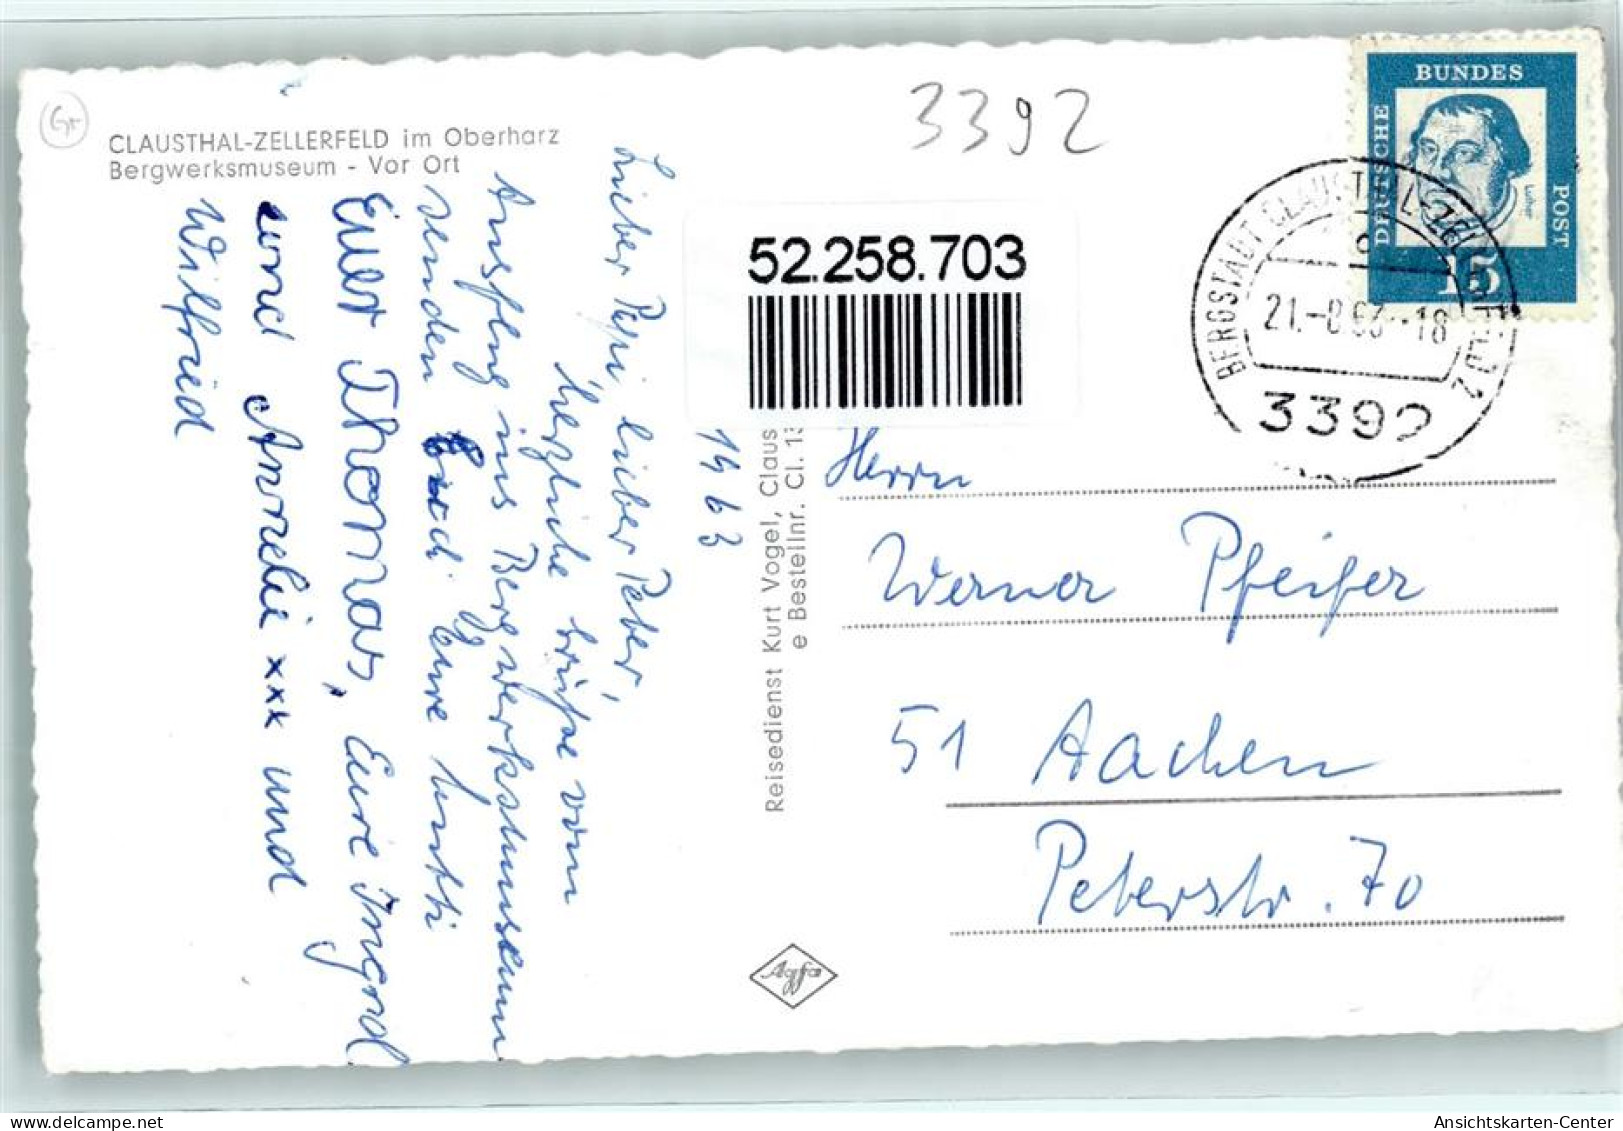 CLAUSTHAL-ZELLERFELD im Oberharz
Bergwerksmuseum - Vor Ort
Gr
3392
BUNDES
DEUTSCHE
POST
Luther
15
BERGSTADT CLAUSTHAL-ZELLERFELD 2
c
21.-8.63-18
3392
52.258.703
Lieber Papi, lieber Peter,
herzliche Grüße vom
Ausflug ins Bergwerksmuseum
senden Euch Eure Mutti
Euer Thomas, Eure Ingrid
und Annelie xxx und
Wilfried
1963
Reisedienst Kurt Vogel, Claus
e Bestellnr. Cl. 13
Herrn
Werner Pfeifer
51 Aachen
Peterstr. 70
Agfa
Ansichtskarten-Center